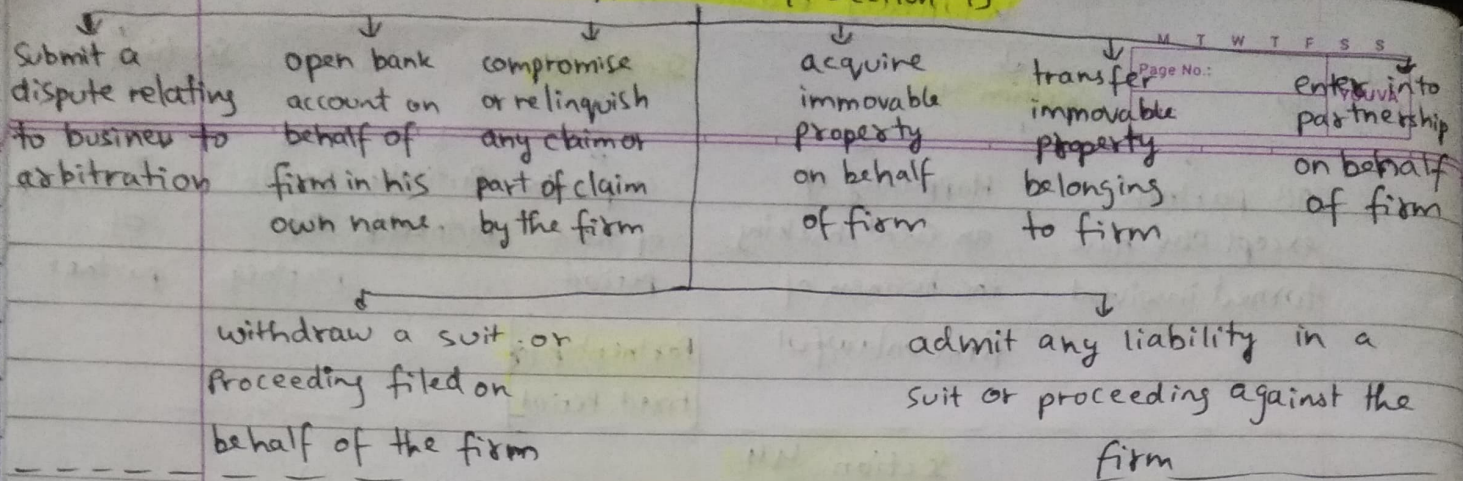 Submit a
dispute relating
to busines to
arbitration
open bank
account on
behalf of
firm in his
own name.
compromise
or relinquish
any claim or
part of claim
by the firm
acquire
immovable
property
on behalf
of firm
M T W T F S S
Page No.:
transfer
immovable
property
belonging
to firm
enter into
partnership
on behalf
of firm
withdraw a suit or
Proceeding filed on
behalf of the firm
admit any liability in a
suit or proceeding against the
firm